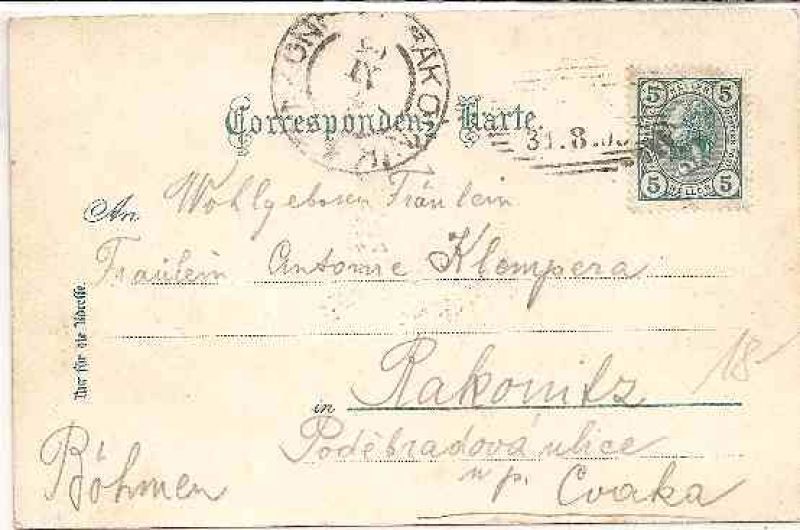 Correspondenz-Karte
31.8.
5 HELLER 5
5 HELLER 5
An Wohlgeboren Fräulein
Fräulein Antonie Klempera
Nur für die Adresse.
in Rakonitz
18
Poděbradová ulice
Böhmen
u p. Cvaka